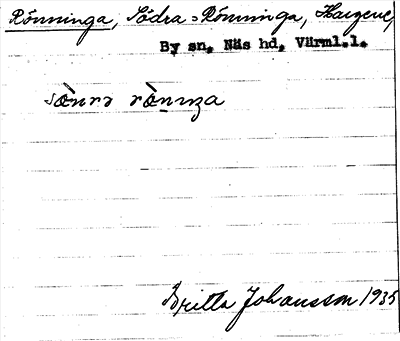 Rönninga, Södra = Rönninga, Haigene,
By sn. Näs hd. Värml.l.
sö̀nrə rö̀nıŋa
Britta Johansson 1935